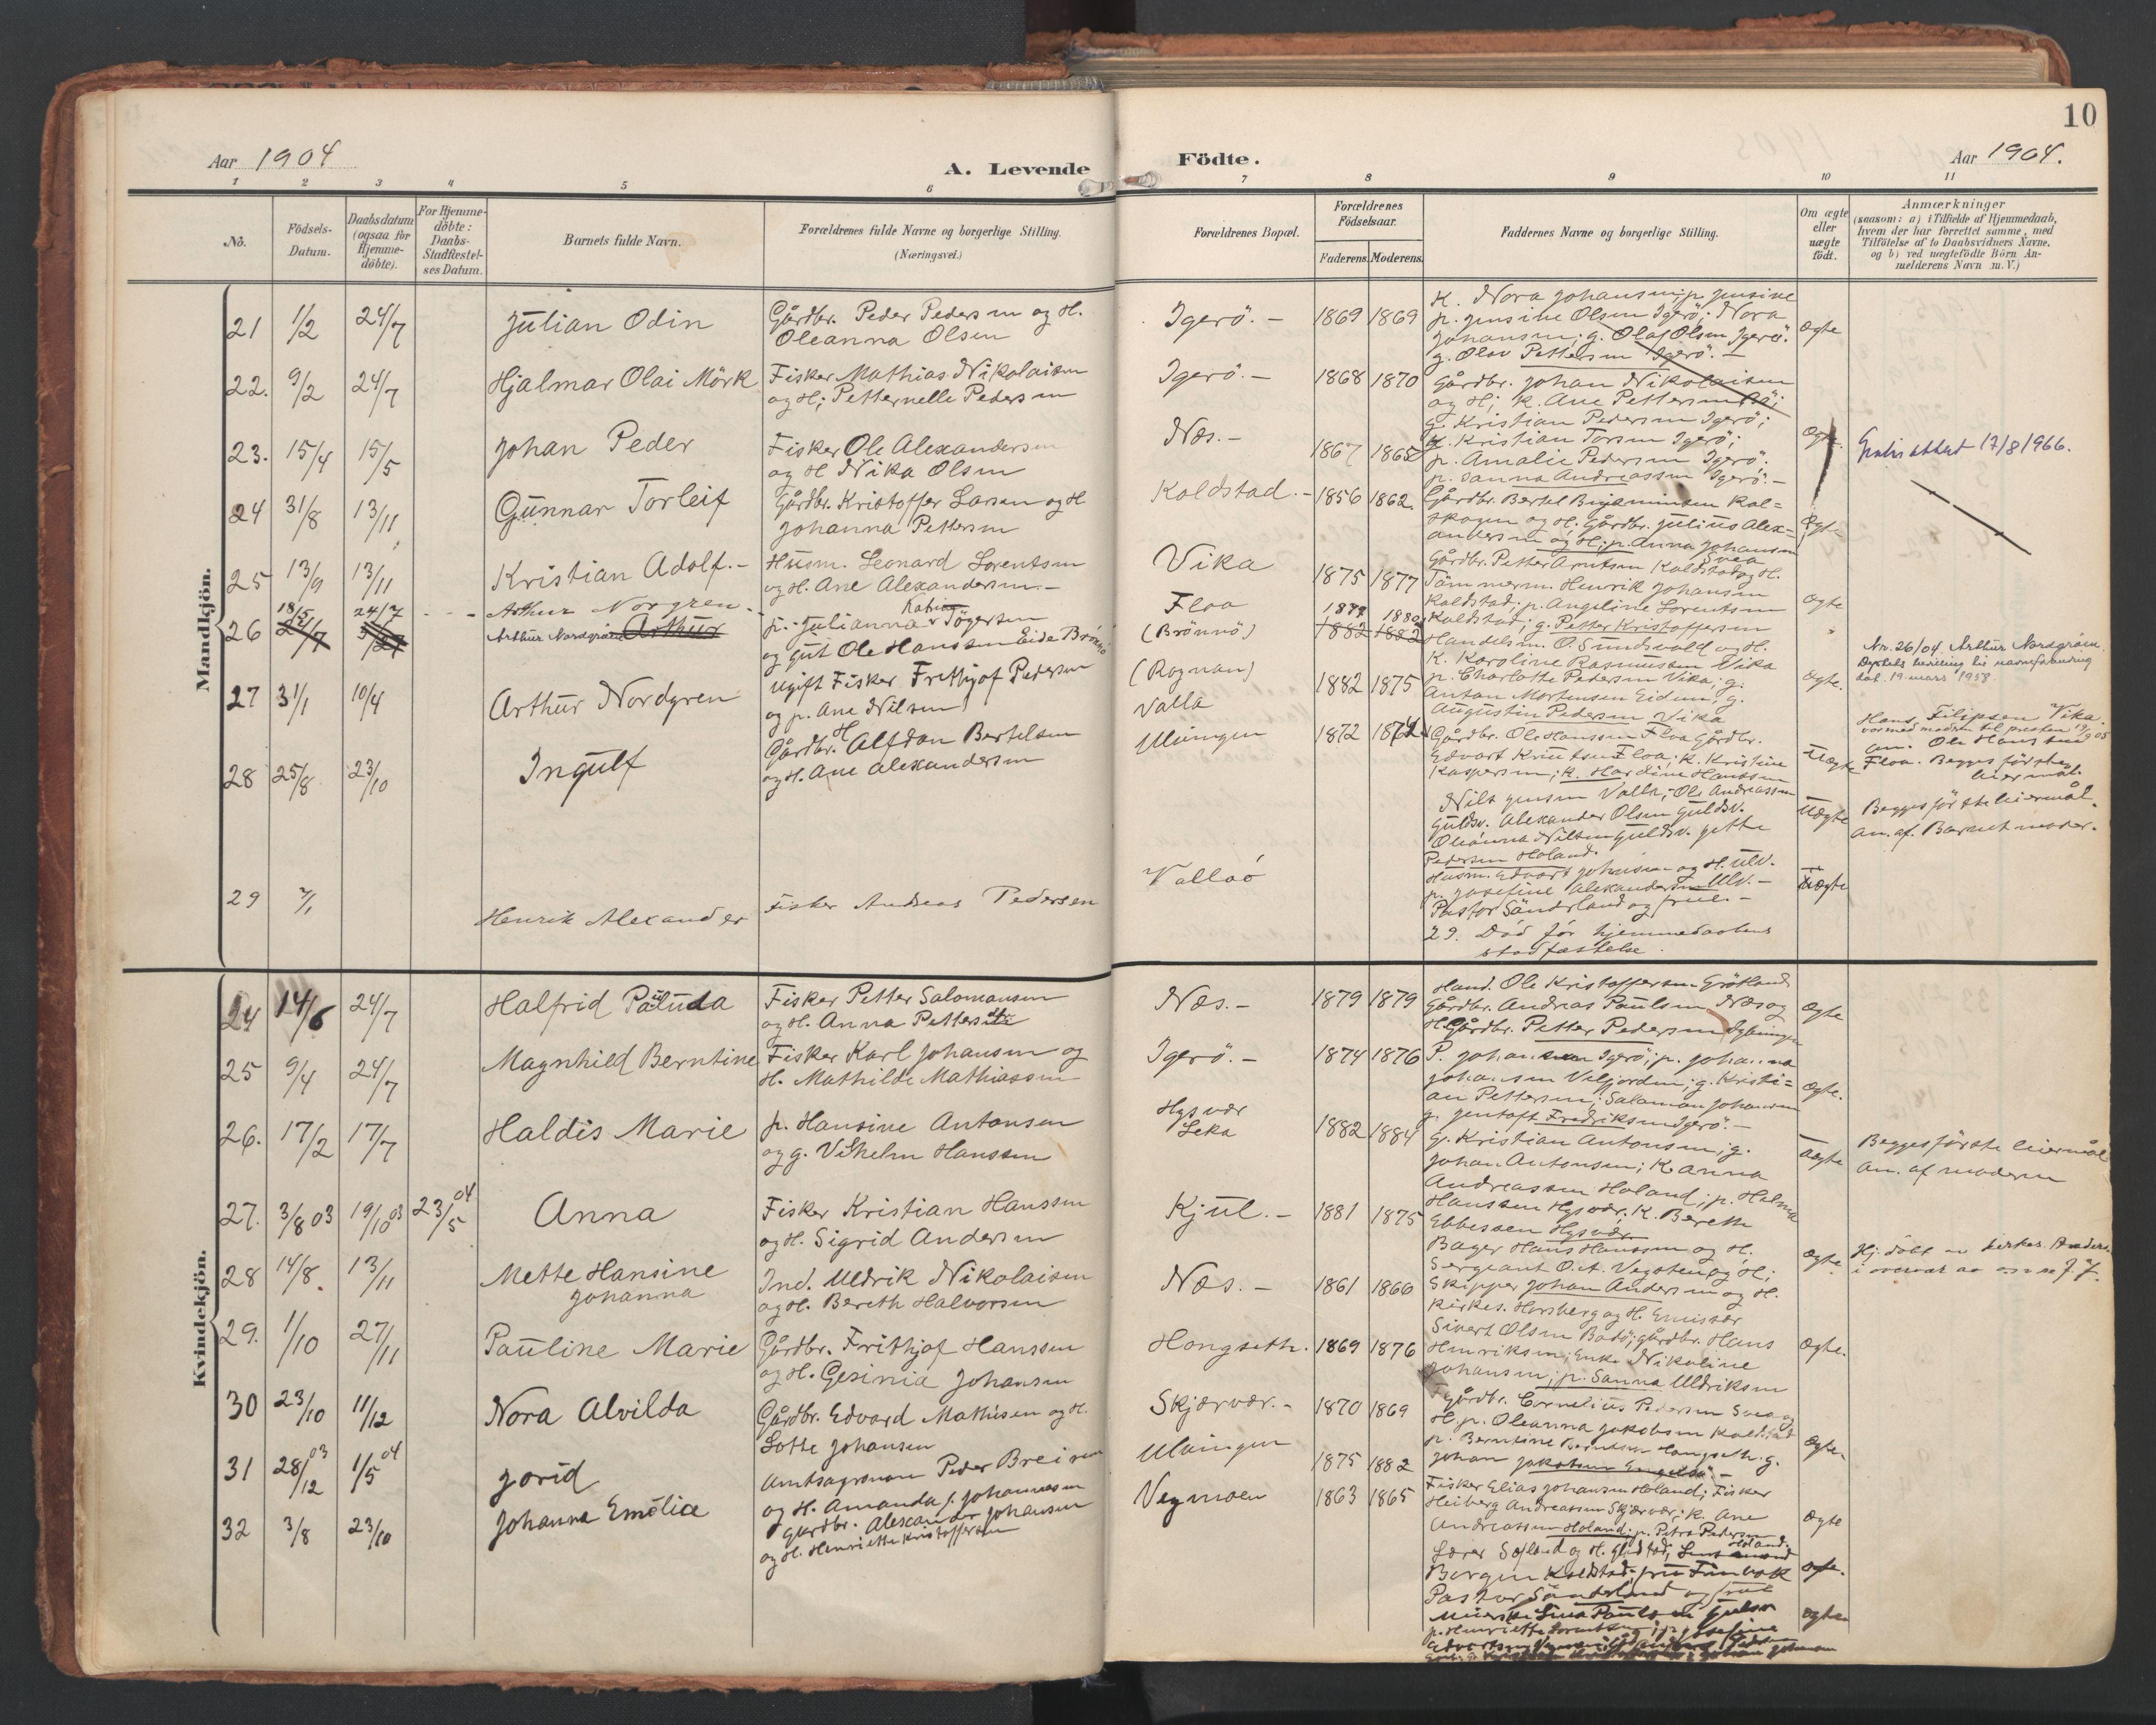 10
Aar 1904
A. Levende
Födte.
Aar 1904.
1 2 3 4 5 6 7 8 9 10 11
Nö.
Födsels-
Datum.
Daabsdatum
(ogsaa for
Hjemme-
döbte).
For Hjemme-
döbte:
Daabs-
Stadfæstel-
ses Datum.
Barnets fulde Navn.
Forældrenes fulde Navne og borgerlige Stilling.
(Næringsvei.)
Forældrenes Bopæl.
Forældrenes
Födselsaar.
Faderens. Moderens.
Faddernes Navne og borgerlige Stilling.
Om ægte
eller
uægte
födt.
Anmærkninger
(saasom: a) i Tilfælde af Hjemmedaab,
hvem der har forrettet samme, med
Tilföielse af to Daabsvidners Navne,
og b) ved uægtefödte Börn An-
melderens Navn m. V.)
Mandkjön.
21 1/2 24/7 Julian Odin
Gårdbr. Peder Pedersen og H.
Oleanna Olsen
22. 9/2 24/7 Hjalmar Olai Mörk
Fisker Mathias Nikolaisen
og H; Petternelle Pedersen
23. 15/4 15/5 Johan Peder
Fisker Ole Alexandersen
og H Nika Olsen
24 31/8 13/11 Gunnar Torleif
Gårdbr. Kristoffer Larsen og H
Johanna Pettersen
25 13/9 13/11 Kristian Adolf.-
Husm. Leonard Lorentsen
og H. Ane Alexandersen.-
26 18/5 24/7 Arthur Norgren
Arthur Nordgråen Arthur
p. Julianna Tögersen
og gut Ole Hanssen Eide Brönnö
27 31/1 10/4 Arthur Nordgren
Ugift Fisker Frithjof Pedersen
og p. Ane Nilsen
28 25/8 23/10 Ingulf
Gårdbr. Alfdan Bertelsen
og H. Ane Alexandersen
29 Henrik Alexander
Fisker Andreas Pedersen
Igerö.-
Igerö.-
Næs.-
Koldstad.-
Vika
Floa
(Brönnö)
(Rognan)
Valla
Ulvingen
Vallaö
1869 1869
1868 1870
1867 1865
1856 1862.
1875 1877
1882 1882
1882 1875
1872 1874
K. Nora Johansen; p. Jensine
p. Jensine Olsen Igerö; Nora
Johansen; g. Olaf Olsen Igerö.
g. Olav Pettersen Igerö.-
Gårdbr. Johan Nikolaisen
og H; K. Ane Pettersen
g. Kristian Pedersen Igerö;
g. Kristian Torsen Igerö;
p. Amalie Pedersen Igerö.
p. Sanna Andreassen Igerö.-
Gårdbr. Bertel Benjaminsen Kal=
skogen og H. Gårdbr. Julius Alex=
andersen og H; p. Anna Johansen
Svea
Gårdbr. Petter Arntsen Koldstad og H.
Tömmerm. Henrik Johansen
Koldstad; p. Angeline Lorentsen
Koldstad; g. Petter Kristoffersen
Handelsm. O. Sundsvold og H.
K. Karoline Rasmussen Vika
p. Charlotte Pedersen Vika; g.
Anton Mortensen Eidem; g.
Augustin Pedersen Vika
Gårdbr. Ole Hanssen Floa Gårdbr.
Edvart Knutsen Floa; K. Kristine
Kaspersen; K. Hardine Hanssen
Nils Jensen Valla; Ole Andreassen
Guldsv. Alexander Olsen Guldsv.
Oleanna Nilsen Guldsv. Jette
Pedersen Holand.
Husm. Edvart Johnsen og H. Ulv.
p. Josefine Alexandersen Ulv.-
Pastor Sönderland og frue.-
29. Död för hjemmedaabens
stadfæstelse.
ægte
ægte.
ægte
ægte
ægte.
Uægte
Uægte
Uægte
Gratis attest 17/8 1966.
Nr. 26/04. Arthur Nordgråen.
dat. 19. mars 1958.
Hans Filipsen Vika.
var med modren til presten
an. Ole Hanssen
Floa. Begges förste
leiermål.
Begges förste leiermål.
an. af Barnets moder.
Kvindekjön.
24 14/6 24/7 Halfrid Paluda
Fisker Petter Salomonsen
og H. Anna Petters
25 9/4 24/7 Magnhild Berntine
Fisker Karl Johansen og
H. Mathilde Mathiassen
26. 17/2 17/7 Haldis Marie
p. Hansine Antonsen
og g. Vilhelm Hanssen
27. 3/8 03 19/10 03 23/5 04 Anna
Fisker Kristian Hanssen
og H. Sigrid Andersen
28 14/8. 13/11 Mette Hansine
Johanna
Ind. Uldrik Nikolaisen
og H. Bereth Halvorsen
29. 1/10 27/11 Pauline Marie
Gårdbr. Frithjof Hanssen
og H. Gesinia Johansen
30 23/10 11/12 Nora Alvilda
Gårdbr. Edvard Mathisen og H.
Lotte Johansen
31 28/12 03 1/5 04 Jorid
Amtsagronom Peder Breinen
og H. Amanda f. Johannesen
32 3/8 23/10 Johanna Emelie
Gårdbr. Alexander Johansen
og H. Henriette Kristoffersen
Næs.-
Igerö.-
Hysvær
Leka
Kjul.-
Næs.-
Hongseth.
Skjærvær.-
Ulvingen
Vegmoen
1879 1879
1874 1876
1882 1884
1881 1875
1861 1866
1869 1876
1870 1869
1875 1882
1863 1865
Hand. Ole Kristoffersen Grötland
Gårdbr. Andreas Paulsen Næs og
H. Gårdbr. Petter Pedersen
P. Johansen Igerö; p. Johanna
Johansen Velfjorden; g. Kristi=
an Pettersen; Salomon Johansen
g. Jentoft Fredriksen Igerö.-
g. Kristian Antonsen; g.
Johan Antonsen; K. Anna
Andreassen Holand; p. Helma
Hanssen Hysvær. K. Bereth
Ebbessen Hysvær
Bager Hans Hanssen og H.
Sergeant O. A. Vegsten og H;
Skipper Johan Andersen og H.
Kirkes. Horsberg og H. Emissær
Sivert Olsen Bodö; gårdbr. Hans
Henriksen; Enke Nikoline
Johansen; p. Sanna Uldriksen
gårdbr. Cornelius Pedersen Svea og
H. p. Oleanna Jakobsen Koldstad
p. Berntine Berntsen Hongseth. g.
Johan Jakobsen
Fisker Elias Johansen Holand; Fisker
Heiberg Andreassen Skjærvær; K. Ane
Andreassen Holand; p. Petra Pedersen
Holand.
Pastor Sönderland og frue
ægte
ægte.
Uægte
ægte
ægte.
ægte.
ægte
ægte.
ægte
Begges förste leiermål
an. af moderen
Hj. döbt av kirkes.